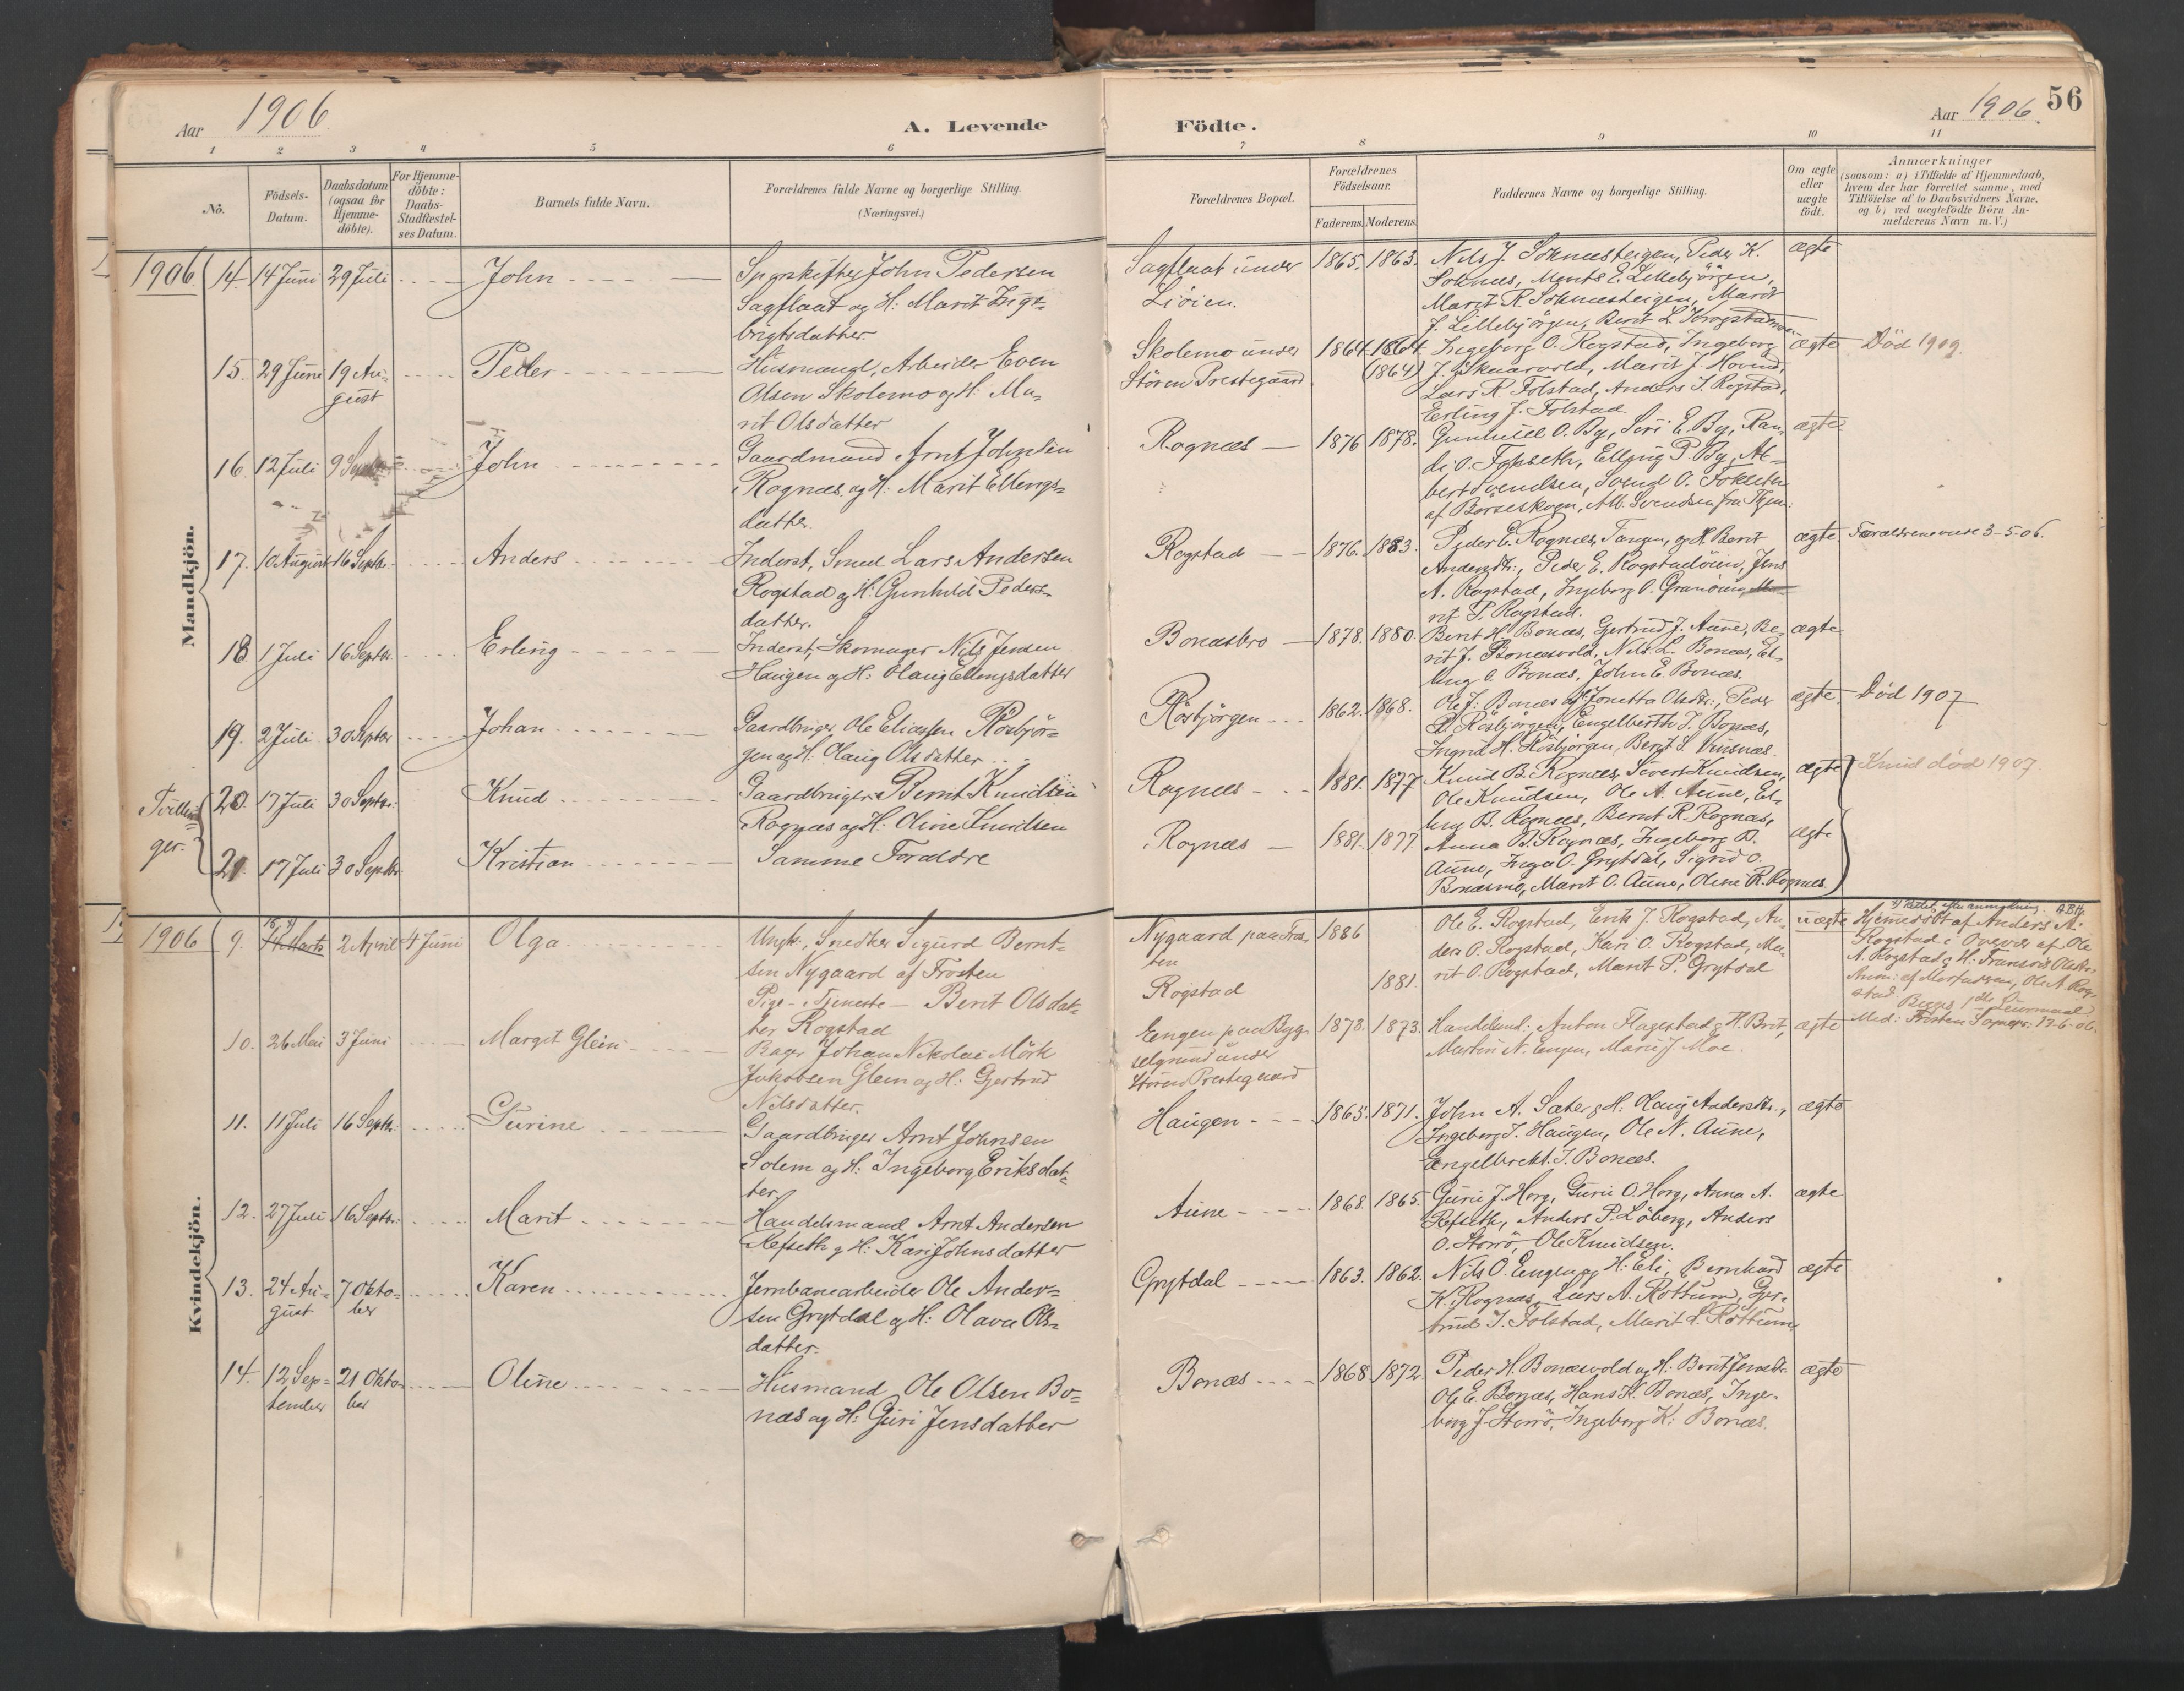 Aar 1906.
A. Levende
Födte.
Aar 1906.
56
1 2 3 4 5 6 7 8 9 10 11
No.
Födsels-
Datum.
Daabsdatum
(ogsaa for
Hjemme-
döbte).
For Hjemme-
döbte:
Daabs-
Stadfæstel-
ses Datum.
Barnets fulde Navn.
Forældrenes fulde Navne og borgerlige Stilling.
(Næringsvei.)
Forældrenes Bopæl.
Forældrenes
Födselsaar.
Faderens. Moderens.
Faddernes Navne og borgerlige Stilling.
Om ægte
eller
uægte
födt.
Anmærkninger
(saasom: a) i Tilfælde af Hjemmedaab,
hvem der har forrettet samme, med
Tilföielse af to Daabsvidners Navne,
og b) ved uægtefödte Börn An-
melderens Navn m. V.)
Mandkjön.
1906
14. 14 Juni 29 Juli John
Sporskifter John Pedersen
Sagflaat og H: Marit Inge-
brigtsdatter.
Sagflaat under
Liöien.
1865. 1863.
Nils J. Soknesteigen, Peder K.
Soknæs, Marits E. Lillebjörgen,
Marit R. Soknesteigen, Marit
J. Lillebjörgen, Berit L. Krogstadmoen
ægte
15. 29 Juni 19 Au-
gust
Peder
Husmand, Arbeider Even
Olsen Skolemo og H: Ma-
rit Olsdatter
Skolemo under
Stören Prestegaard
1864. 1864
(1864)
Ingeborg O. Rogstad, Ingeborg
J. Skaarvold, Marit J. Hovind,
Lars R. Folstad, Anders I. Rogstad,
Erling J. Folstad
ægte
Död 1909.
16. 12 Juli 9 Septbr John
Gaardmand Arnt Johnsen
Rognæs og H: Marit Ellings-
datter.
Rognæs
1876 1878.
Gunhild O. By, Siri E. By, Ran-
di O. Folseth, Elling P. By, Al-
bert Svendsen, Svend O. Folseth
af Börseskogn, Alb. Svendsen fra Thjem.
ægte
17. 10 August 16 Septbr. Anders
Inderst, Smed Lars Andersen
Rogstad og H: Gunhild Peders-
datter.
Rogstad
1876. 1883.
Peder E. Rognæs, Tangen, og H. Berit
Andersdtr., Peder E. Rogstadöien, Jens
A. Rogstad, Ingeborg O. Granöien, Ma-
rit P. Rogstad.
ægte
Forældrene viede 3-5-06.
18. 1 Juli 16 Septbr. Erling
Inderst, Skomager Nils Jensen
Haugen og H: Olaug Ellengsdatter
Bonæsbro
1878. 1880.
Berit H. Bonæs, Gjertrud J. Aune, Be-
rit J. Bonæsvold, Nils L. Bonæs, El-
ling O. Bonæs, John E. Bonæs.
ægte
19. 2 Juli 30 Septbr Johan
Gaardbruger Ole Eliassen Rösbjör-
gen og H: Olaug Olsdatter
Rösbjörgen
1862. 1868.
Ole J. Bonæs og H: Jonetta Olsdtr., Peder
O. Rösbjörgen, Engelberth J. Bonæs,
Ingrid H. Rösbjörgen, Berit L. Vinsnæs.
ægte
Död 1907
Tvillin-
ger.
20. 17 Juli 30 Septbr. Knud
Gaardbruger Bernt Knudsen
Rognæs og H: Oline Knudsen
Rognæs
1881. 1877
Knud B. Rognæs, Sivert Knudsen,
Ole Knudsen, Ole A. Aune, El-
ling B. Rognæs, Bernt R. Rognæs,
ægte
Knud död 1907.
21. 17 Juli 30 Septbr. Kristian
Samme Forældre
Rognæs
1881. 1877
Anna B. Rognæs, Ingeborg B.
Aune, Inga O. Grytdal, Sigrid O.
Bonæsmo, Marit O. Aune, Oline R. Rognæs.
ægte
Kvindekjön.
1906
9. 15. 14 Marts 2 April 4 Juni Olga
Ungk., Snedker Sigurd Bernt-
sen Nygaard af Frosten
Pige - Tjeneste - Berit Olsdat-
ter Rogstad
Nygaard paa Fros-
ten
Rogstad
1886
1881.
Ole E. Rogstad, Erik J. Rogstad, An-
ders O. Rogstad, Kari O. Rogstad, Ma-
rit O. Rogstad, Marit P. Grytdal
uægte
Hjemedöbt af Anders A.
Rogstad i Overvær af Ole
A. Rogstad og H: Fransois Olsdtr.
Anm: af Morfaderen, Ole A. Rog-
stad. Begges 1ste Leiermaal
Med: Frosten Sognepr. 13-6-06.
10. 26 Mai 3 Juni Margit Glein
Bager Johan Nikolai Mörk
Jakobsen Glein og H: Gjertrud
Nilsdatter.
Eengen paa Byg-
selgrund under
Stören Prestegaard
1878. 1873.
Handelsmd. Anton Flagestad og H. Brit,
Martin N. Engen, Marie J. Moe.
ægte
11. 11 Juli 16 Septbr. Gurine
Gaardbruger Arnt Johnsen
Solem og H: Ingeborg Eriksdat-
ter.
Haugen
1865. 1871.
John A. Sæter og H: Olaug Andersdtr.,
Ingeborg J. Haugen, Ole N. Aune,
Engelbrekt. J. Bonæs.
ægte
12. 27 Juli 16 Septbr. Marit
Handelsmand Arnt Andersen
Refseth og H: Kari Johnsdatter
Aune
1868. 1865.
Guri J. Horg, Guri O. Horg, Anna A.
Refseth, Anders P. Löberg, Anders
O. Storrö, Ole Knudsen.
ægte
13. 24 Au-
gust
7 Okto-
ber
Karen
Jernbanearbeider Ole Ander-
sen Grytdal og H: Olava Ols-
datter.
Grytdal
1863. 1862.
Nils O. Engen og H: Eli, Bernhard
K. Rognæs, Lars A. Rottum, Gjer-
trud J. Folstad, Marit L. Rottum
ægte
14. 12 Sep-
tember
21 Okto-
ber
Oline
Husmand Ole Olsen Bo-
næs og H: Guri Jensdatter
Bonæs
1868. 1872.
Peder H. Bonæsvold og H: Berit Jensdtr.
Ole E. Bonæs, Hans H. Bonæs, Inge-
borg J. Storrö, Ingeborg K. Bonæs.
ægte